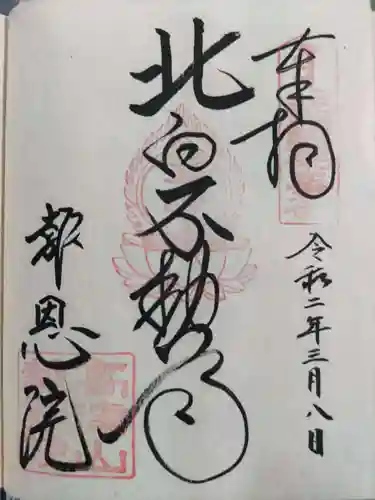 奉拝
令和二年三月八日
北向不動尊
報恩院